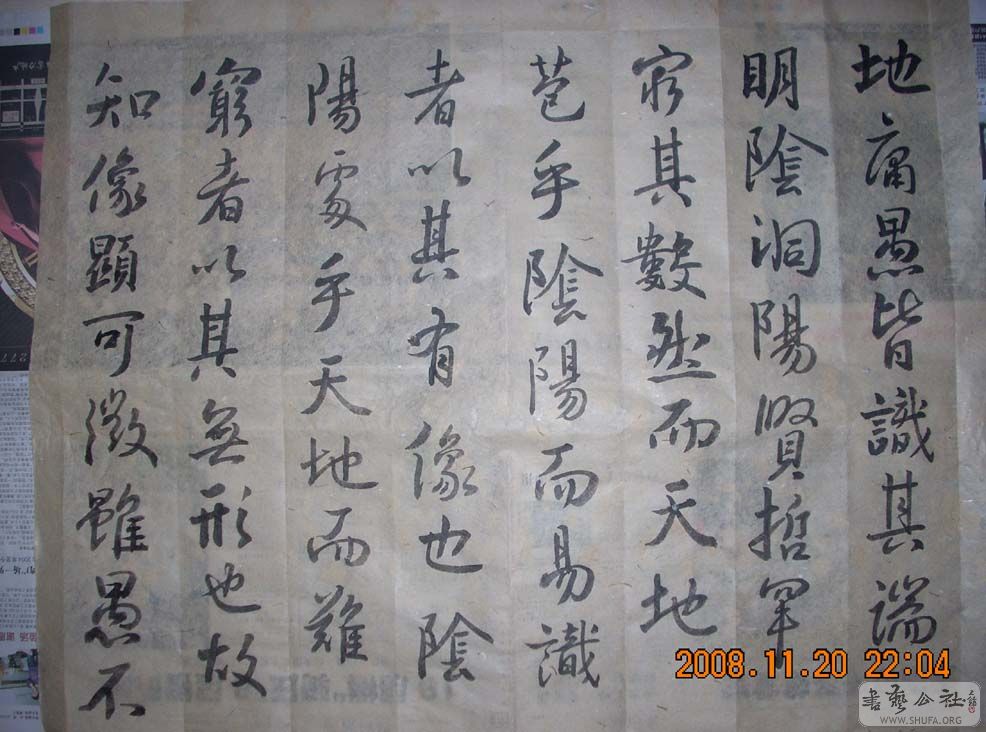 地庸愚皆識其端
明陰洞陽賢哲罕
窮其數然而天地
苞乎陰陽而易識
者以其有像也陰
陽處乎天地而難
窮者以其無形也故
知像顯可徵雖愚不
2008.11.20 22:04
書藝公社
WWW.SHUFA.ORG